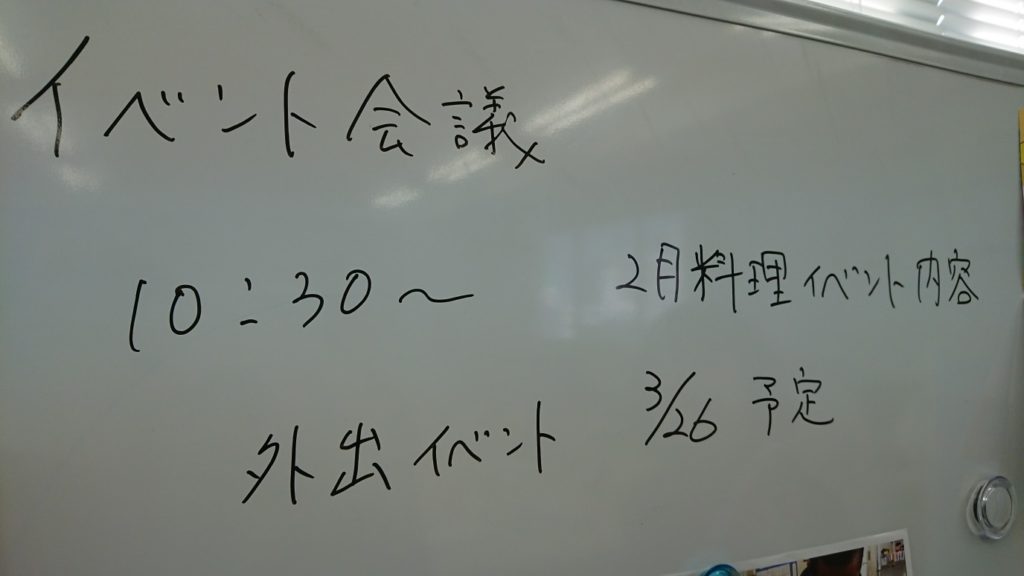 イベント会議
10:30～
2月料理イベント内容
外出イベント
3/26 予定